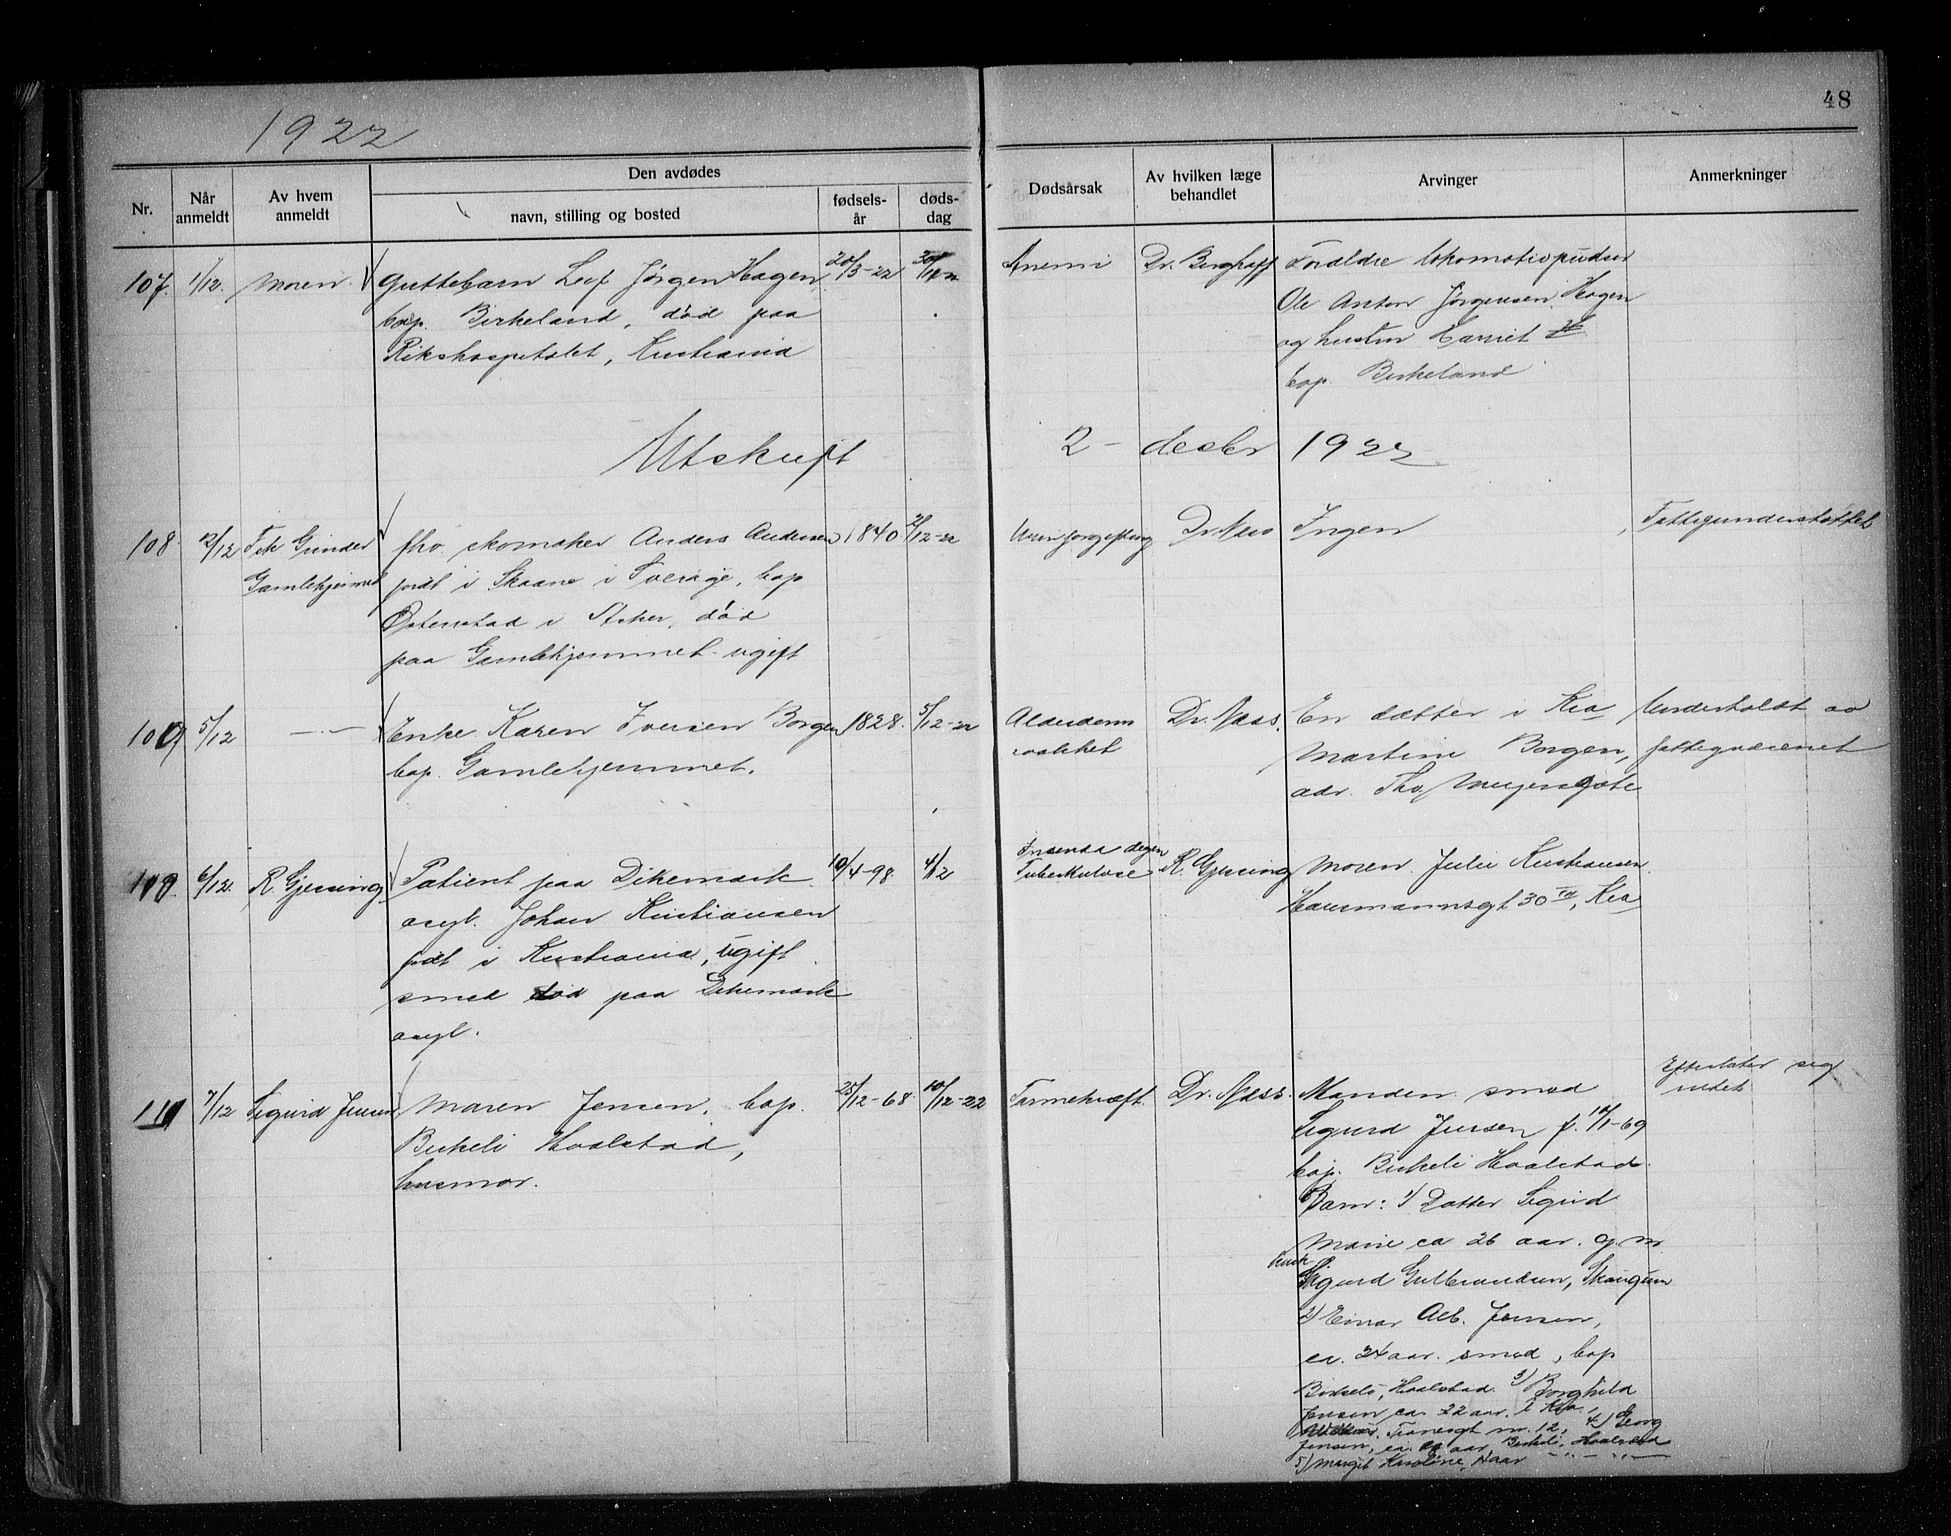 1922
48
Nr.
Når anmeldt
Av hvem anmeldt
Den avdødes
navn, stilling og bosted
fødsels-år
døds-dag
Dødsårsak
Av hvilken læge behandlet
Arvinger
Anmerkninger
107. 1/12. Moren. Guttebarn Leif Jørgen Hagen 20/3-22 Anemi Dr. Forældre lokomotivpudser
bop. Birkeland, død paa Ole Anton Jørgensen Hagen
Rikshospitalet, Kristiania og hustru Harriet
bop. Birkeland
Utskrift 2 - desbr 1922
108 2/12 Frk Grinder fhv. skomaker Anders Andersen 1840 2/12-22 Urinforgiftning Dr. Næss Ingen Fattigunderstøttet
Gamlehjemmet født i Skaane i Sverige, bop
Østenstad i Asker, død
paa Gamlehjemmet. ugift
109 5/12 —"— Enke Karen Iversen Borgen 1828. 5/12-22 Alderdoms Dr. Næss. En datter i Kra Underholdt av
bop. Gamlehjemmet. svakhet Martine Borgen, fattigvæsenet
adr. Thv. Meyersgate
110. 6/12. R. Gjessing Patient paa Dikemark 10/4-98. 4/12 degen R. Gjessing Moren Julie Kristiansen
asyl. Johan Kristiansen Tuberkulose Hausmannsgt 30 IV, Kra
født i Kristiania, ugift.
smed død paa Dikemark
asyl.
111 7/12 Sigurd Jensen Maren Jensen, bop. 25/12-68. 10/12-22 Tarmekræft. Dr. Næss. Manden smed Efterlater sig intet
Birkeli Hvalstad, Sigurd Jensen f. 10/1-69
husmor. bop. Birkeli Hvalstad.
Barn: 1) Datter Sigrid
Marie ca 26 aar. g. m.
kusk
Sigurd Gulbrandsen, Skaugum
2) Einar Alb. Jensen,
ca. 24 aar. smed, bop
Birkeli, Hvalstad. 3) Borghild
Jensen ca. 22 aar. i Kra.,
Tranesgt nr. 12, 4) Georg
Jensen, ca. aar Birkeli, Hvalstad
5) Margit Karoline, aar —"— —"—